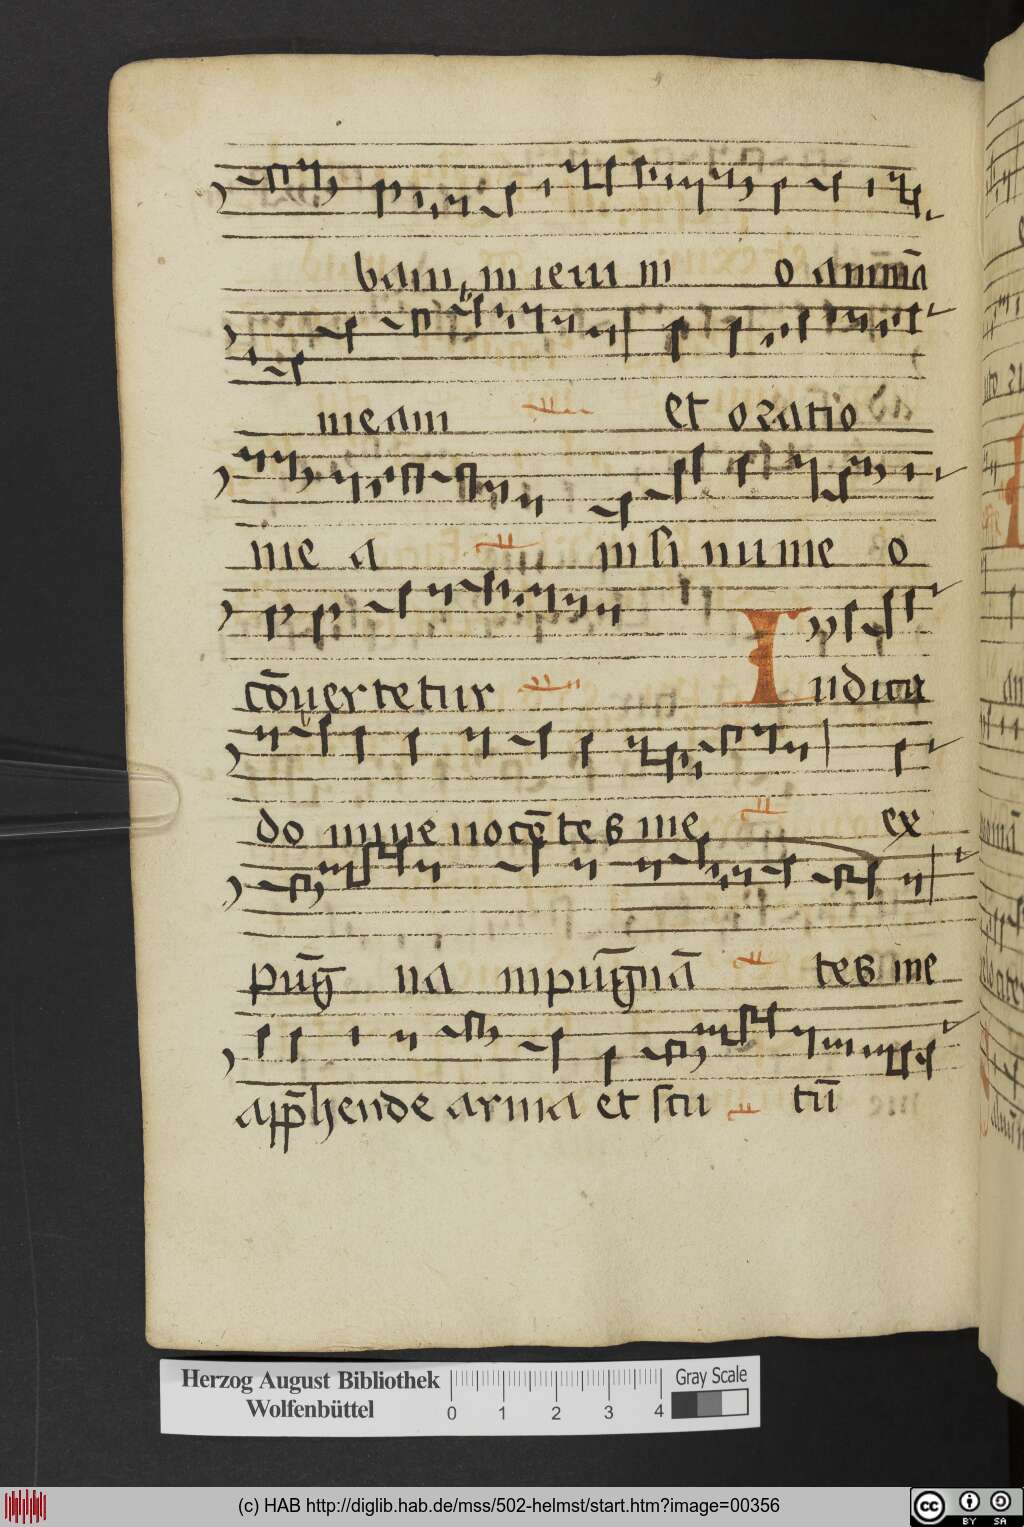 bam in ieiu ni o animā
meam et oratio
me a in si nu me o
cōuertetur Iudica
do mine nocētes me ex
puḡ na inpuḡnā tes me
app̄hende arma et scu tū
Herzog August Bibliothek
Wolfenbüttel
0 1 2 3 4
Gray Scale
(c) HAB http://diglib.hab.de/mss/502-helmst/start.htm?image=00356
cc BY SA